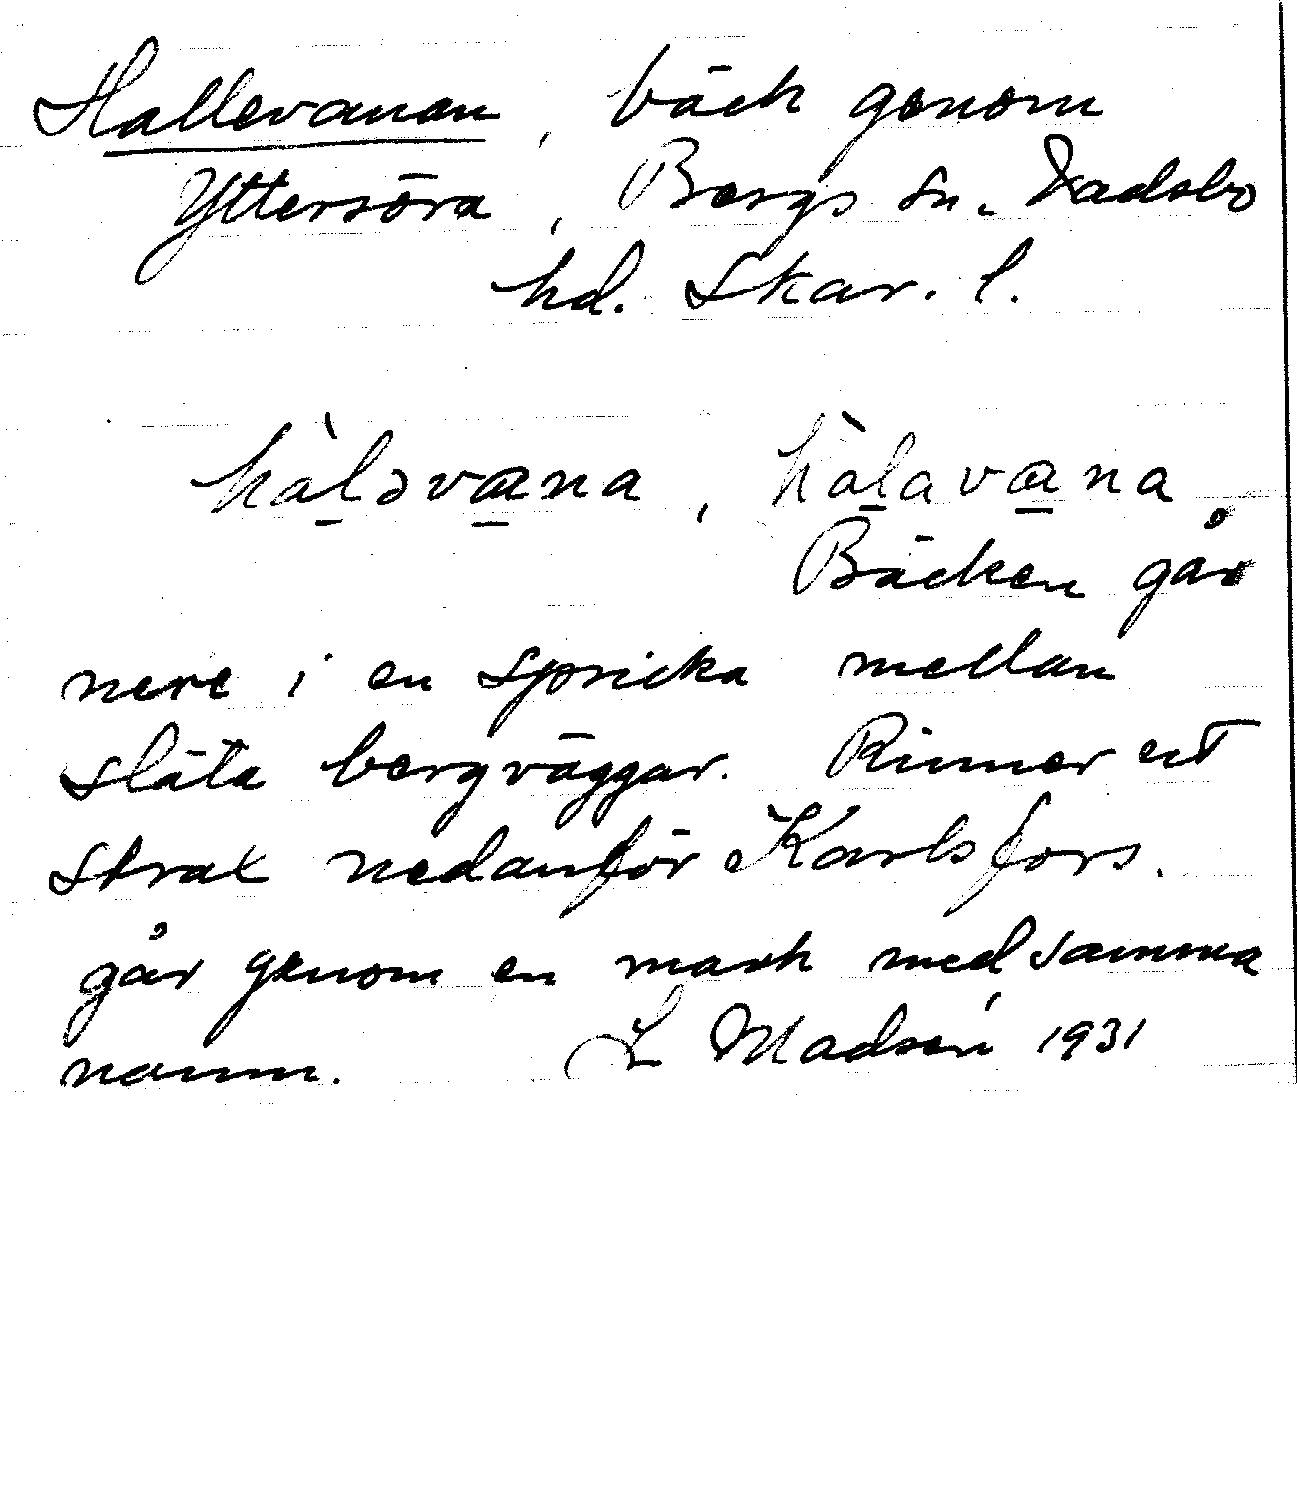 Hallevanan, bäck genom
Yttersöra, Bergs sn. Vadsbo
hd. Skar. l.
hàləvana, hàlavana
Bäcken går
nere i en spricka mellan
släta bergväggar. Rinner ut
strax nedanför Karlsfors.
går genom en mark med samma
namn. L Madsén 1931